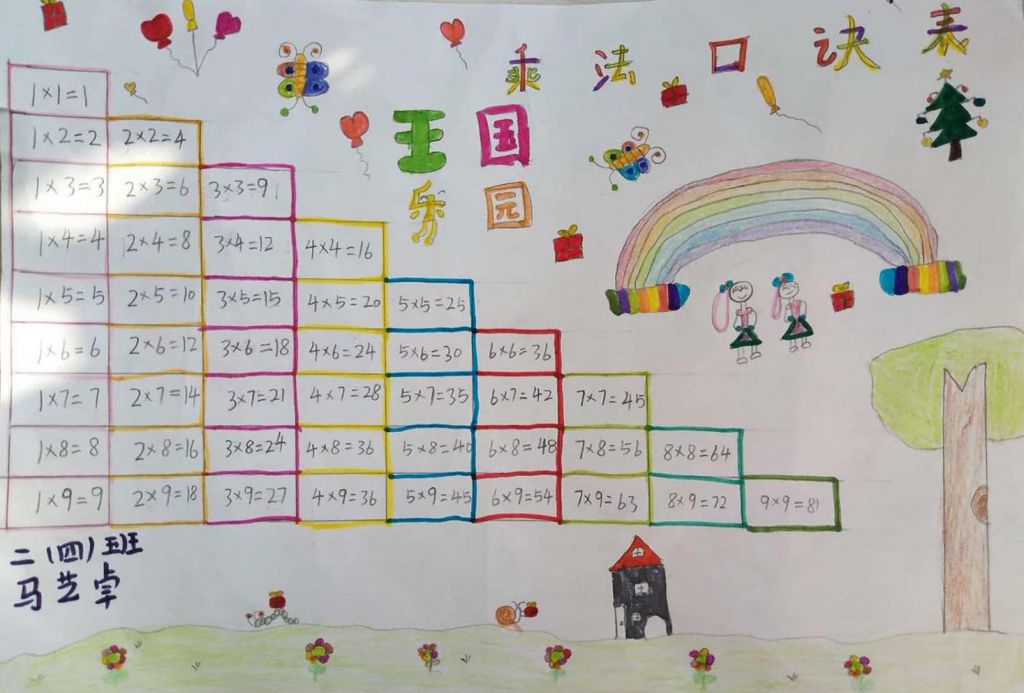 乘法口诀表
王国
乐园
1×1=1
1×2=2 2×2=4
1×3=3 2×3=6 3×3=9
1×4=4 2×4=8 3×4=12 4×4=16
1×5=5 2×5=10 3×5=15 4×5=20 5×5=25
1×6=6 2×6=12 3×6=18 4×6=24 5×6=30 6×6=36
1×7=7 2×7=14 3×7=21 4×7=28 5×7=35 6×7=42 7×7=45
1×8=8 2×8=16 3×8=24 4×8=36 5×8=40 6×8=48 7×8=56 8×8=64
1×9=9 2×9=18 3×9=27 4×9=36 5×9=45 6×9=54 7×9=63 8×9=72 9×9=81
二(四)班
马艺卓